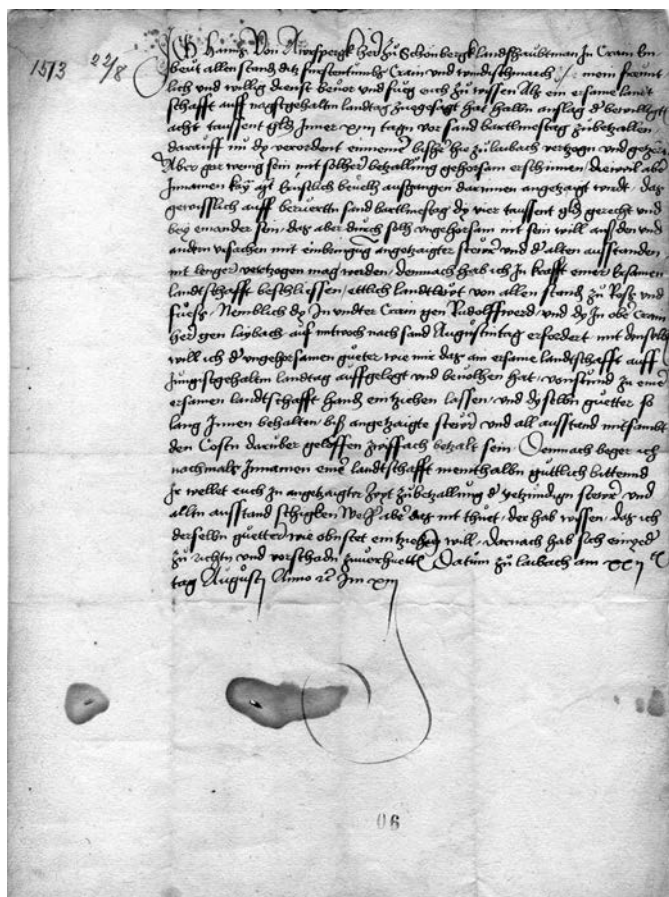 1513 22/8
Ich Hanns von Awrsperg her zů Schönberg landshaubtman in Crain Em
beut allen stand ditz fürstentumbs Crain und windischmarch mein freunt
lich und willig dienst bevor und fueg euch zů wissen Als ein ersame landt
schafft auff nagstgehaltn landtag zuegesagt hat halbn anslag d bewilligt
acht taussent gld Inner xiiij tagn vor sand bartlmestag zubetzallen
darauff nu dy verordent einnemer bisher hie zu laibach vertzogn und getzert
Aber gar wenig sein mit solher betzallung gehorsam erschinnen, dieweil aber
Innamen kay mt ernstlich bevelh ausgangen darinnen angetzaigt wirdt, das
gewisslich auff beruertn sand bartlmestag dy vier taussent gld gerecht und
bey einander sein, das aber durch solh ungehorsam nit sein will aus den und
andern ursachen mit einbringung angetzaigter stewr und d alten ausstanden
nit lenger vertzogen mag werden, demnach hab ich In krafft einer ersamen
landtschafft beschliessen, ettlich landtlewt von allen stand zu Ross und
fuess, Nemblich dy In undter Crain gen Rudolffwerd und dy In ober Crain
her gen laybach auf mitwoch nach sand Augustintag erfordert mit denselbn
will ich d ungehorsamen gueter wie mir das ain ersame landtschafft auff
Jungistgehaltm landtag auffgelegt und bevolhen hat, vonstund zu einer
ersamen landtschafft hand eintziehen lassen, und dyselbn guetter so
lang Innen behalten, biss angetzaigte stewr und all ausstand mitsambt
den Costn darüber geloffen zwifach betzalt sein. Demnach beger ich
nachmals Innamen einer landtschafft meinthalbn guttlich bittend
Ir wellet euch In angetzaigter Zeyt zubetzallung d yetzundign stewr und
altn ausstand schigken Welh aber das nit thuet, der hab wissen, das ich
derselbn guetter wie obnstet eintziehen will, darnach hab sich ain yeder
zu richtn und vor schadn zuverhuettn Datum zu laibach am xxij
tag Augusti Anno Im xiij
06